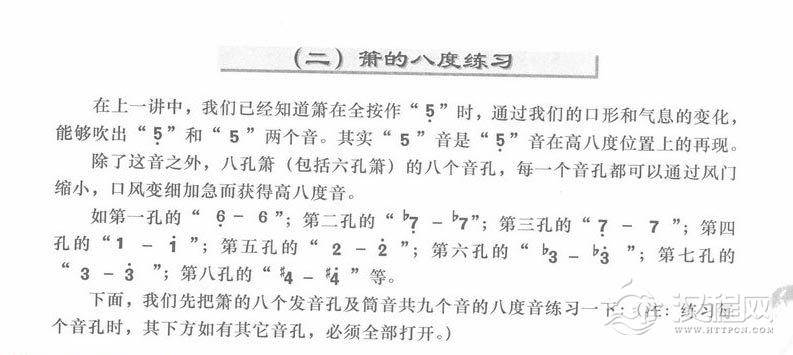 （二）箫的八度练习
在上一讲中，我们已经知道箫在全按作“5̣”时，通过我们的口形和气息的变化，
能够吹出“5̣”和“5”两个音。其实“5”音是“5̣”音在高八度位置上的再现。
除了这音之外，八孔箫（包括六孔箫）的八个音孔，每一个音孔都可以通过风门
缩小，口风变细加急而获得高八度音。
如第一孔的“6̣－6”；第二孔的“♭7̣－♭7”；第三孔的“7̣－7”；第四
孔的“1－1̇”；第五孔的“2－2̇”；第六孔的“♭3－♭3̇”；第七孔的
“3－3̇”；第八孔的“♯4－♯4̇”等。
下面，我们先把箫的八个发音孔及筒音共九个音的八度音练习一下：（注：练习每
个音孔时，其下方如有其它音孔，必须全部打开。）
汉程网
WWW.HTTPCN.COM